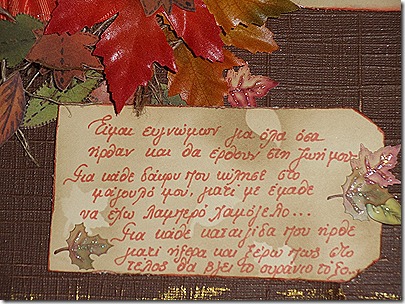 Είμαι ευγνώμων για όλα όσα
ήρθαν και θα έρθουν στη ζωή μου
Για κάθε δάκρυ που κύλησε στο
μάγουλό μου, γιατί με έμαθε
να έχω λαμπερό χαμόγελο...
Για κάθε καταιγίδα που ήρθε
γιατί ήξερα και ξέρω πως στο
τέλος θα βγει το ουράνιο τόξο...